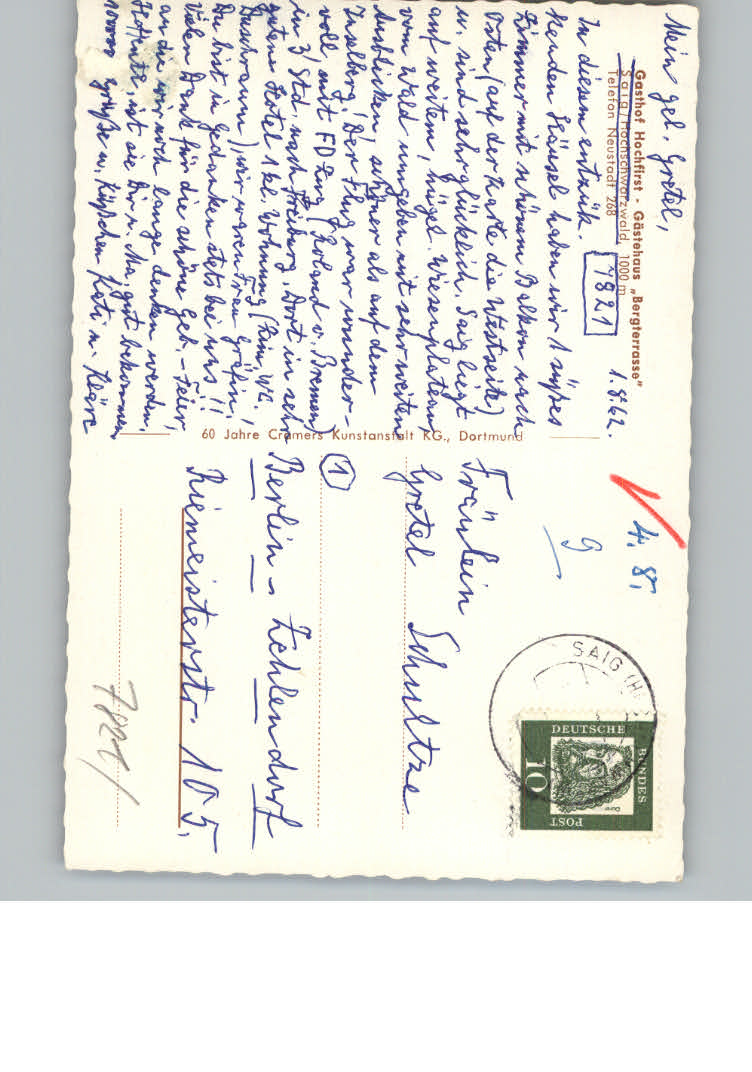 Gasthof Hochfirst - Gästehaus „Bergterrasse"
Saig/Hochschwarzwald, 1000 m
Telefon Neustadt 268
7821
1.8.62.
Mein gel. Gretel,
In diesem entzük-
kenden Häusel haben wir 1 süßes
Zimmer mit schönem Balkon nach
Osten (auf der Karte die Westseite)
u. sind sehr glücklich. Saig liegt
auf weitem, hügel. Wiesenplateau
vom Wald umgeben mit sehr weiten
Ausblicken, schöner als auf dem
Inselberg! Der Flug war wunder-
voll, mit FD Zug (Roland v. Bremen)
in 3 Std. nach Freiburg. Dort in sehr
gutem Hotel 1 kl. Wohnung (Zim, WC.
Duschraum), wir waren Frau Gräfin!
Du bist in Gedanken stets bei uns!!
Vielen Dank für die schöne Geb.-Feier,
an die wir noch lange denken werden.
Hoffentl. ist sie Dir u. Ma. gut bekommen
10000 Grüße u. Küßchen Käti u. Kläre
60 Jahre Cramers Kunstanstalt KG., Dortmund
4. 8.
9
SAIG (H
DEUTSCHE
BUNDES
POST
10
Fräulein
Gretel Schultze
1
Berlin-Zehlendorf
Riemeisterstr. 105.
7821/